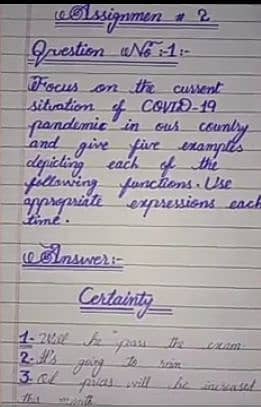 Assignmen # 2
Question No :-1:-
Focus on the current
situation of COVID-19
pandemic in our country
and give five examples
depicting each of the
following functions. Use
appropriate expressions each
time.
Answer:-
Certainty
1- Will he pass the exam
2- It's going to rain
3- Oil prices will be increased
this month